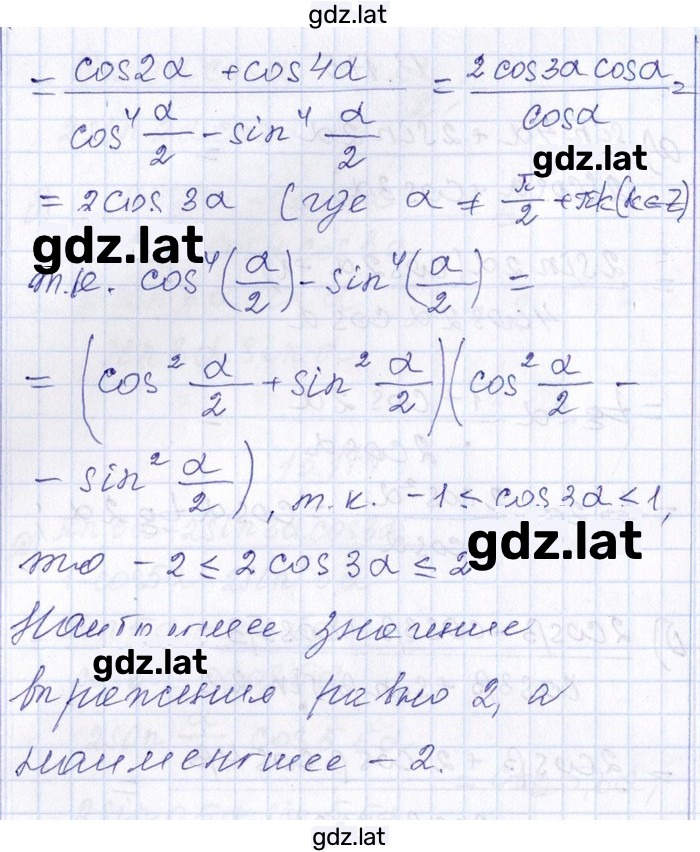 gdz.lat
= (cos2α + cos4α) / (cos⁴ α/2 - sin⁴ α/2) = (2 cos3α cosα) / cosα =
gdz.lat
= 2cos 3α (где α ≠ π/2 + πk (k∈Z)
gdz.lat
т.к. cos⁴(α/2) - sin⁴(α/2) =
= (cos² α/2 + sin² α/2)(cos² α/2 -
- sin² α/2), т.к. -1 ≤ cos 3α ≤ 1,
gdz.lat
то -2 ≤ 2 cos 3α ≤ 2
Наибольшее значение
gdz.lat
выражения равно 2, а
наименьшее - 2.
gdz.lat